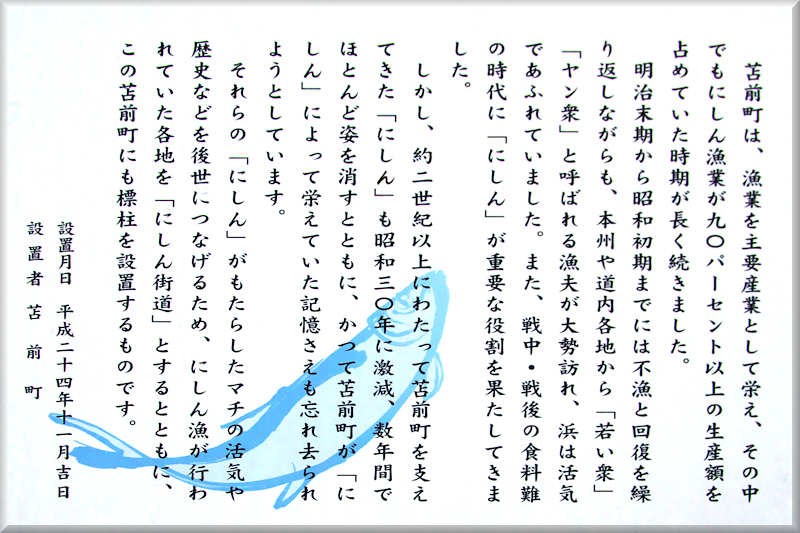 苫前町は、漁業を主要産業として栄え、その中
でもにしん漁業が九〇パーセント以上の生産額を
占めていた時期が長く続きました。
明治末期から昭和初期までには不漁と回復を繰
り返しながらも、本州や道内各地から「若い衆」
「ヤン衆」と呼ばれる漁夫が大勢訪れ、浜は活気
であふれていました。また、戦中・戦後の食料難
の時代に「にしん」が重要な役割を果たしてきま
した。
しかし、約二世紀以上にわたって苫前町を支え
てきた「にしん」も昭和三〇年に激減、数年間で
ほとんど姿を消すとともに、かつて苫前町が「に
しん」によって栄えていた記憶さえも忘れ去られ
ようとしています。
それらの「にしん」がもたらしたマチの活気や
歴史などを後世につなげるため、にしん漁が行わ
れていた各地を「にしん街道」とするとともに、
この苫前町にも標柱を設置するものです。
設置月日　平成二十四年十一月吉日
設置者　苫前町